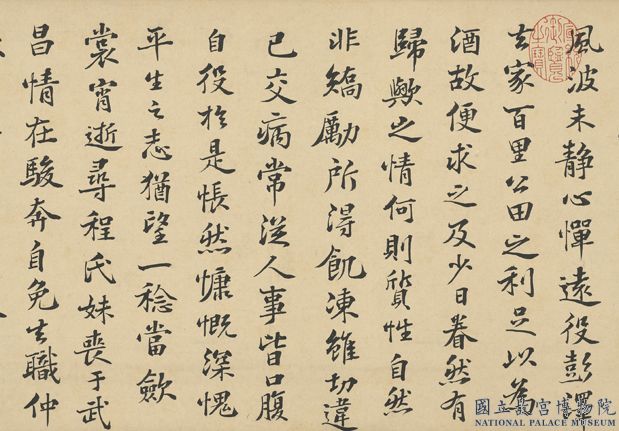 風波未靜心憚遠役彭澤
去家百里公田之利足以為
酒故便求之及少日眷然有
歸歟之情何則質性自然
非矯勵所得飢凍雖切違
已交病常從人事皆口腹
自役於是悵然慷慨深愧
平生之志猶望一稔當歛
裳宵逝尋程氏妹喪于武
昌情在駿奔自免去職仲
國立故宮博物院
NATIONAL PALACE MUSEUM